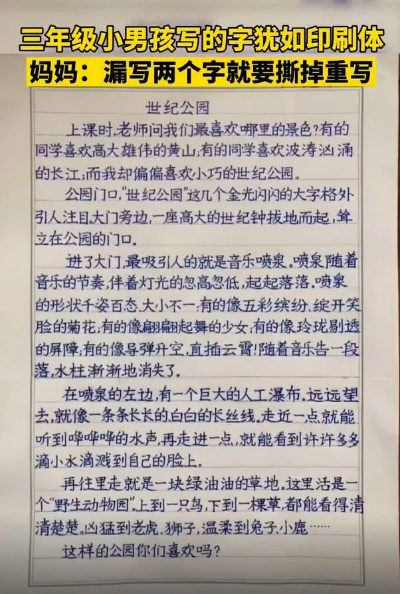 三年级小男孩写的字犹如印刷体
妈妈：漏写两个字就要撕掉重写
世纪公园
上课时,老师问我们最喜欢哪里的景色?有的
同学喜欢高大雄伟的黄山;有的同学喜欢波涛汹涌
的长江;而我却偏偏喜欢小巧的世纪公园。
公园门口,“世纪公园”这几个金光闪闪的大字格外
引人注目。大门旁边,一座高大的世纪钟拔地而起,耸
立在公园的门口。
进了大门,最吸引人的就是音乐喷泉。喷泉随着
音乐的节奏,伴着灯光的忽高忽低,起起落落。喷泉
的形状千姿百态,大小不一:有的像五彩缤纷、绽开笑
脸的菊花;有的像翩翩起舞的少女;有的像玲珑剔透
的屏障;有的像导弹升空,直插云霄!随着音乐告一段
落,水柱渐渐地消失了。
在喷泉的左边,有一个巨大的人工瀑布,远远望
去,就像一条条长长的、白白的长丝线。走近一点,就能
听到哗哗哗的水声,再走进一点,就能看到许许多多
滴小水滴溅到自己的脸上。
再往里走就是一块绿油油的草地,这里活是一
个“野生动物园”。上到一只鸟,下到一棵草,都能看得清
清楚楚。凶猛到老虎、狮子,温柔到兔子、小鹿……
这样的公园你们喜欢吗?